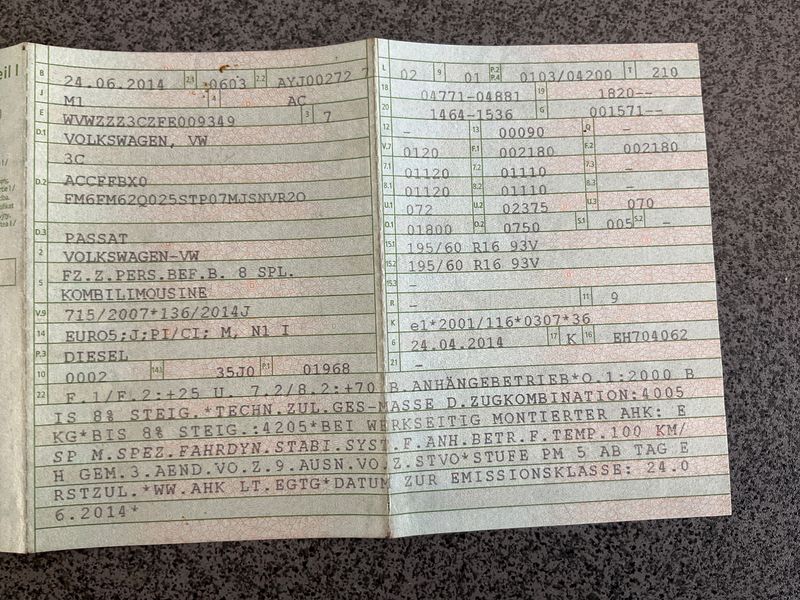 eil I
B 24.06.2014 2.1 0603 2.2 AYJ00272 7
J M1 4 AC
E WVWZZZ3CZFE009349 3 7
D.1 VOLKSWAGEN, VW
3C
D.2 ACCFFBX0
FM6FM62Q025STP07MJSNVR2O
D.3 PASSAT
2 VOLKSWAGEN-VW
5 FZ.Z.PERS.BEF.B. 8 SPL.
KOMBILIMOUSINE
V.9 715/2007*136/2014J
14 EURO5;J;PI/CI; M, N1 I
P.3 DIESEL
10 0002 14.1 35J0 P.1 01968
L 02 9 01 P.2 P.4 0103/04200 T 210
18 04771-04881 19 1820--
20 1464-1536 G 001571--
12 - 13 00090 Q -
V.7 0120 F.1 002180 F.2 002180
7.1 01120 7.2 01110 7.3 -
8.1 01120 8.2 01110 8.3 -
U.1 072 U.2 02375 U.3 070
O.1 01800 O.2 0750 S.1 005 S.2 -
15.1 195/60 R16 93V
15.2 195/60 R16 93V
15.3 -
R - 11 9
K e1*2001/116*0307*36
6 24.04.2014 17 K 16 EH704062
21 -
22 F.1/F.2:+25 U. 7.2/8.2:+70 B.ANHÄNGEBETRIEB*O.1:2000 B
IS 8% STEIG.*TECHN.ZUL.GES-MASSE D.ZUGKOMBINATION:4005
KG*BIS 8% STEIG.:4205*BEI WERKSEITIG MONTIERTER AHK: E
SP M.SPEZ.FAHRDYN.STABI.SYST.F.ANH.BETR.F.TEMP.100 KM/
H GEM.3.AEND.VO.Z.9.AUSN.VO.Z.STVO*STUFE PM 5 AB TAG E
RSTZUL.*WW.AHK LT.EGTG*DATUM ZUR EMISSIONSKLASSE: 24.0
6.2014*